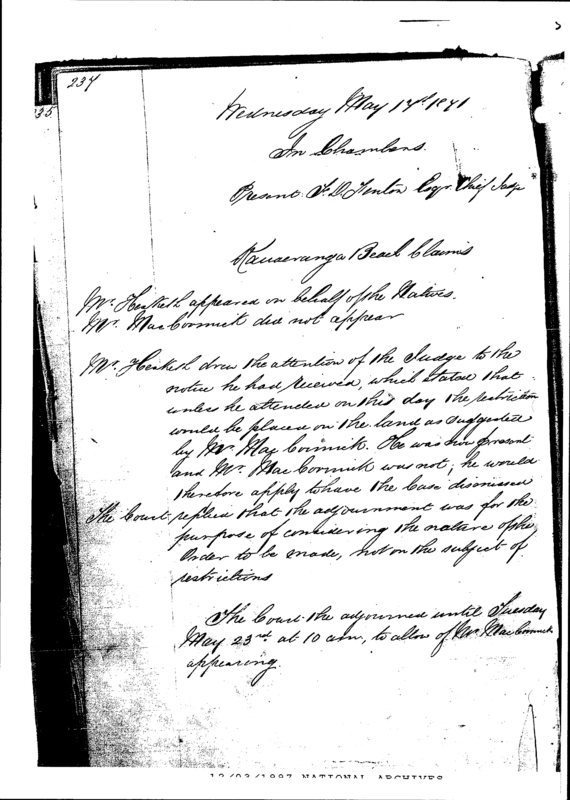 237
35
Wednesday May 17th 1871
In Chambers.
Present F. D. Fenton Esqr. Chief Judge
Kauaeranga Beach Claims
Mr. Hesketh appeared on behalf of the Natives.
Mr. Mac Cormick did not appear
Mr. Hesketh drew the attention of the Judge to the
notice he had received, which stated that
unless he attended on this day the restriction
would be placed on the land as suggested
by Mr. Mac Cormick. He was now present
and Mr. Mac Cormick was not; he would
therefore apply to have the Case dismissed
The Court replied that the adjournment was for the
purpose of considering the nature of the
Order to be made, not on the subject of
restrictions
The Court the adjourned until Tuesday
May 23rd at 10 am, to allow of Mr. Mac Cormick
appearing.
12/03/1997 NATIONAL ARCHIVES